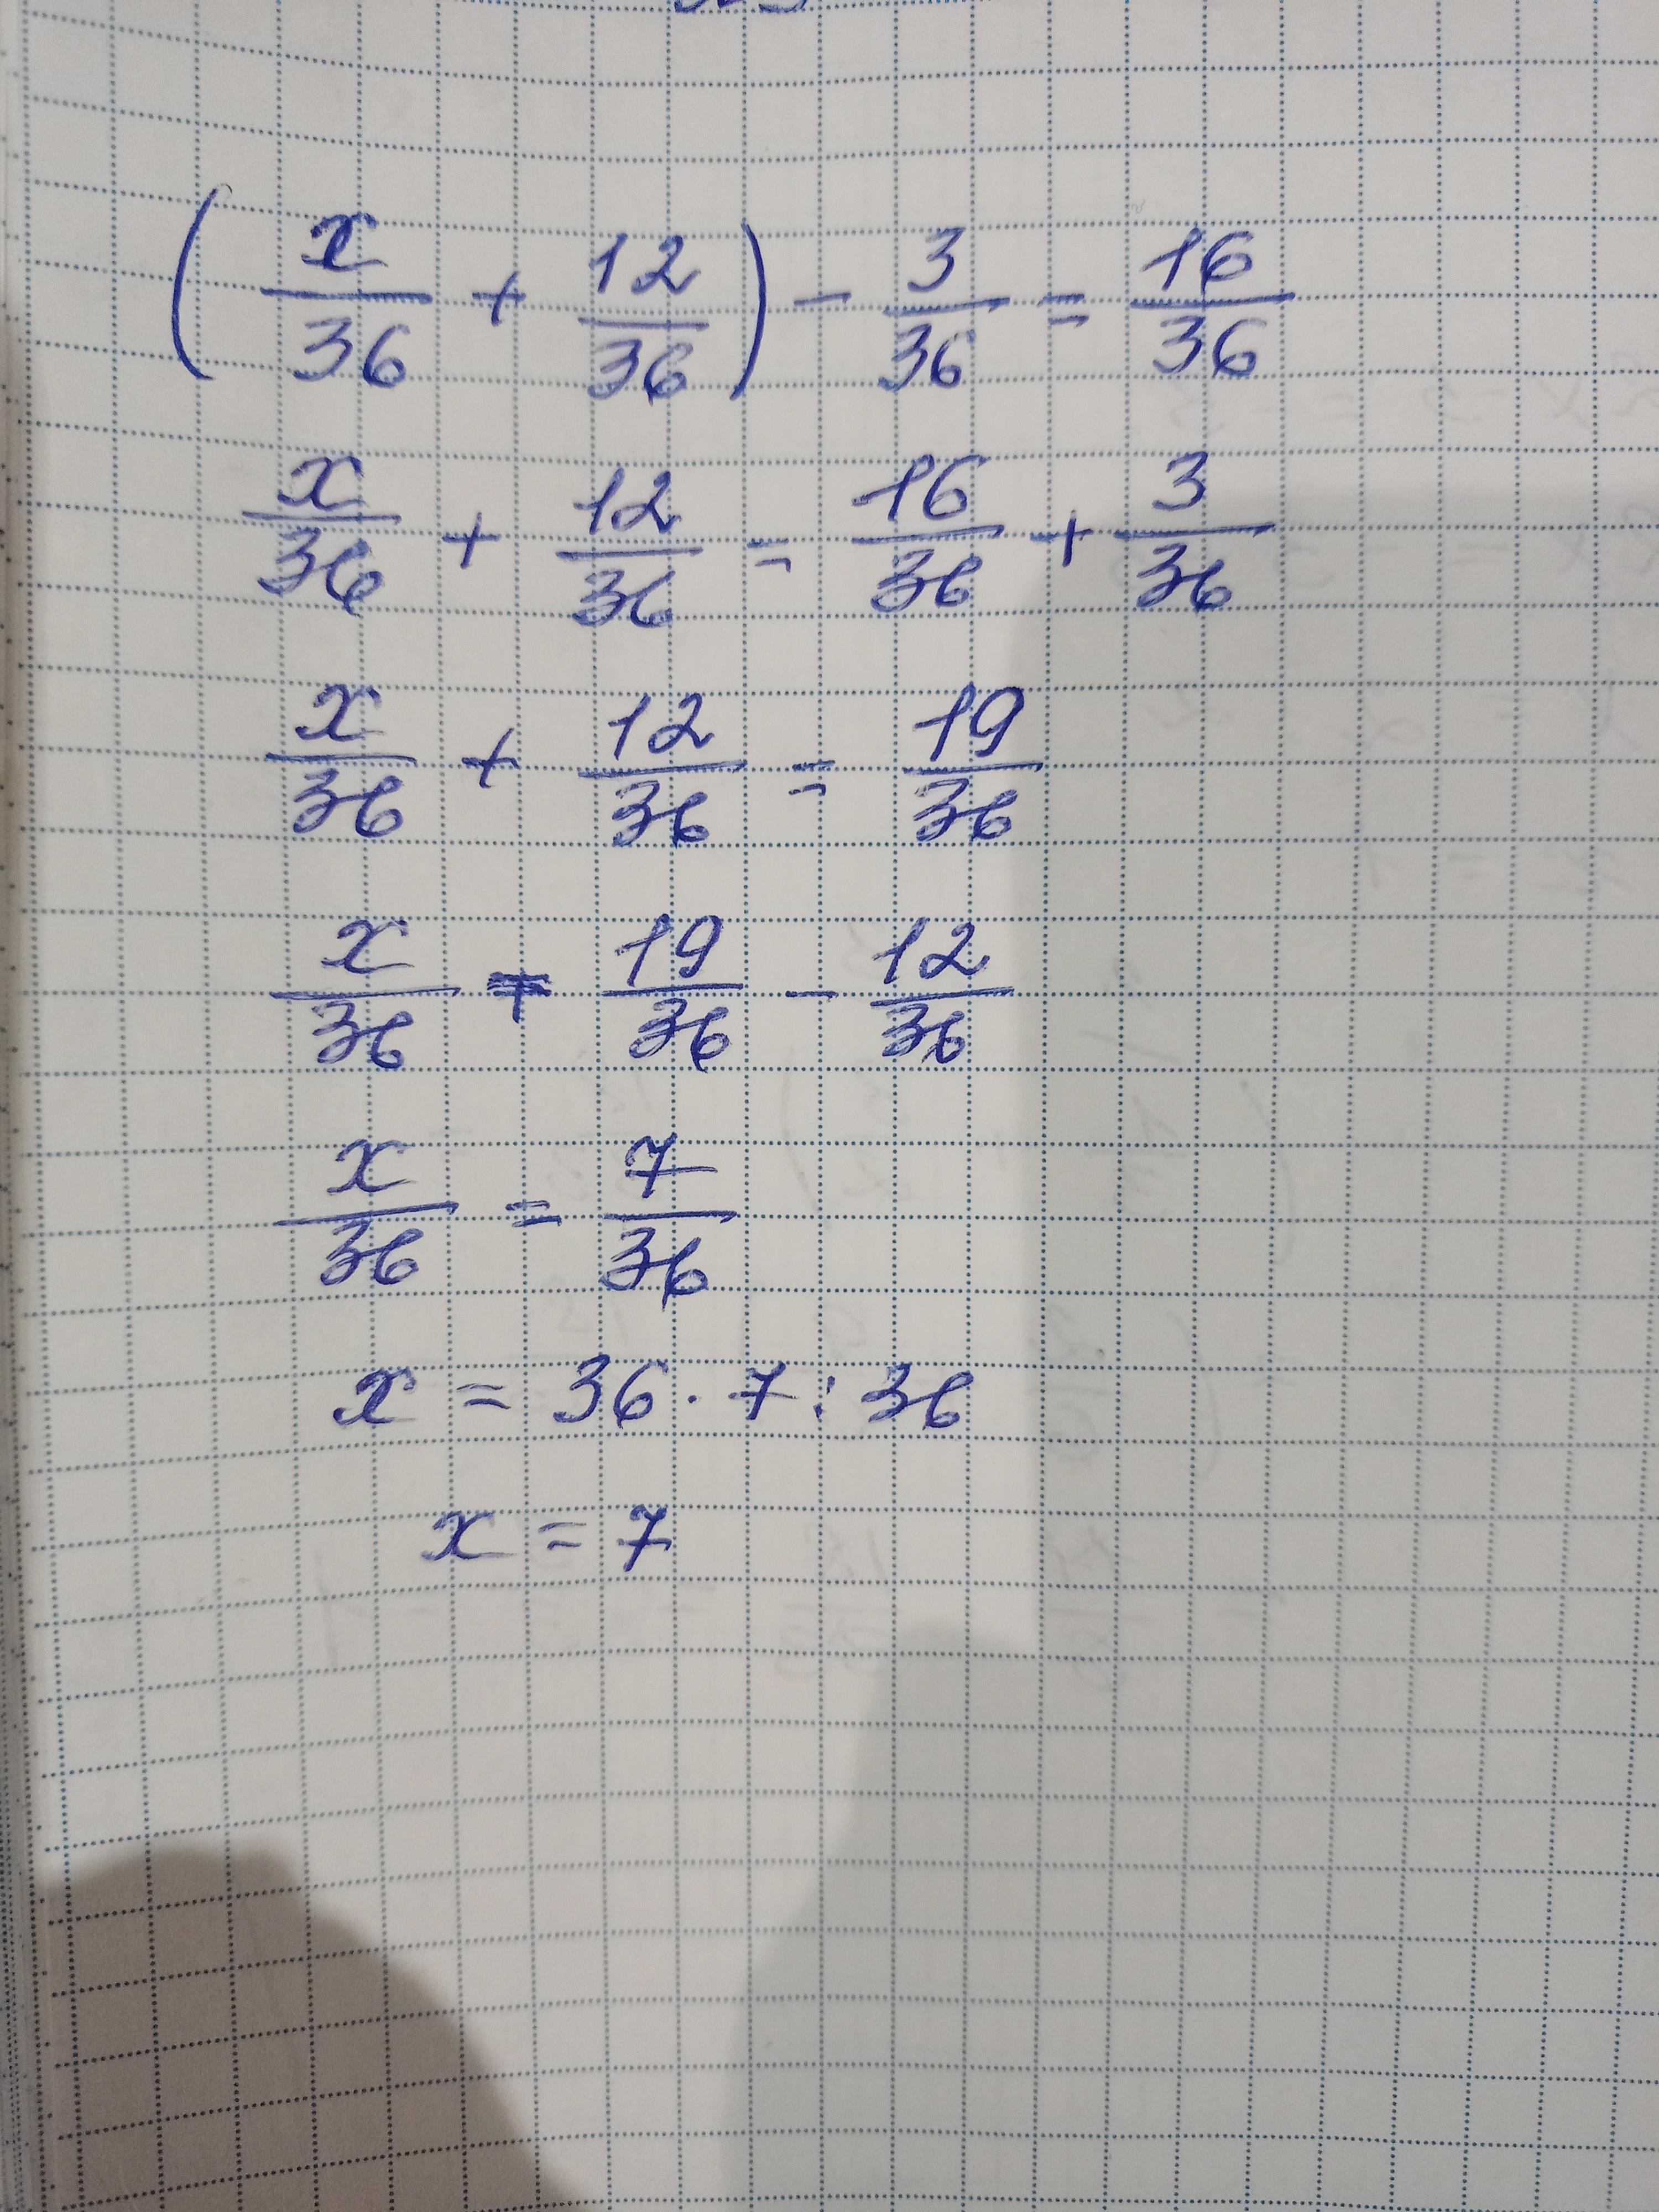 (x/36 + 12/36) - 3/36 = 16/36
x/36 + 12/36 = 16/36 + 3/36
x/36 + 12/36 = 19/36
x/36 = 19/36 - 12/36
x/36 = 7/36
x = 36 · 7 : 36
x = 7